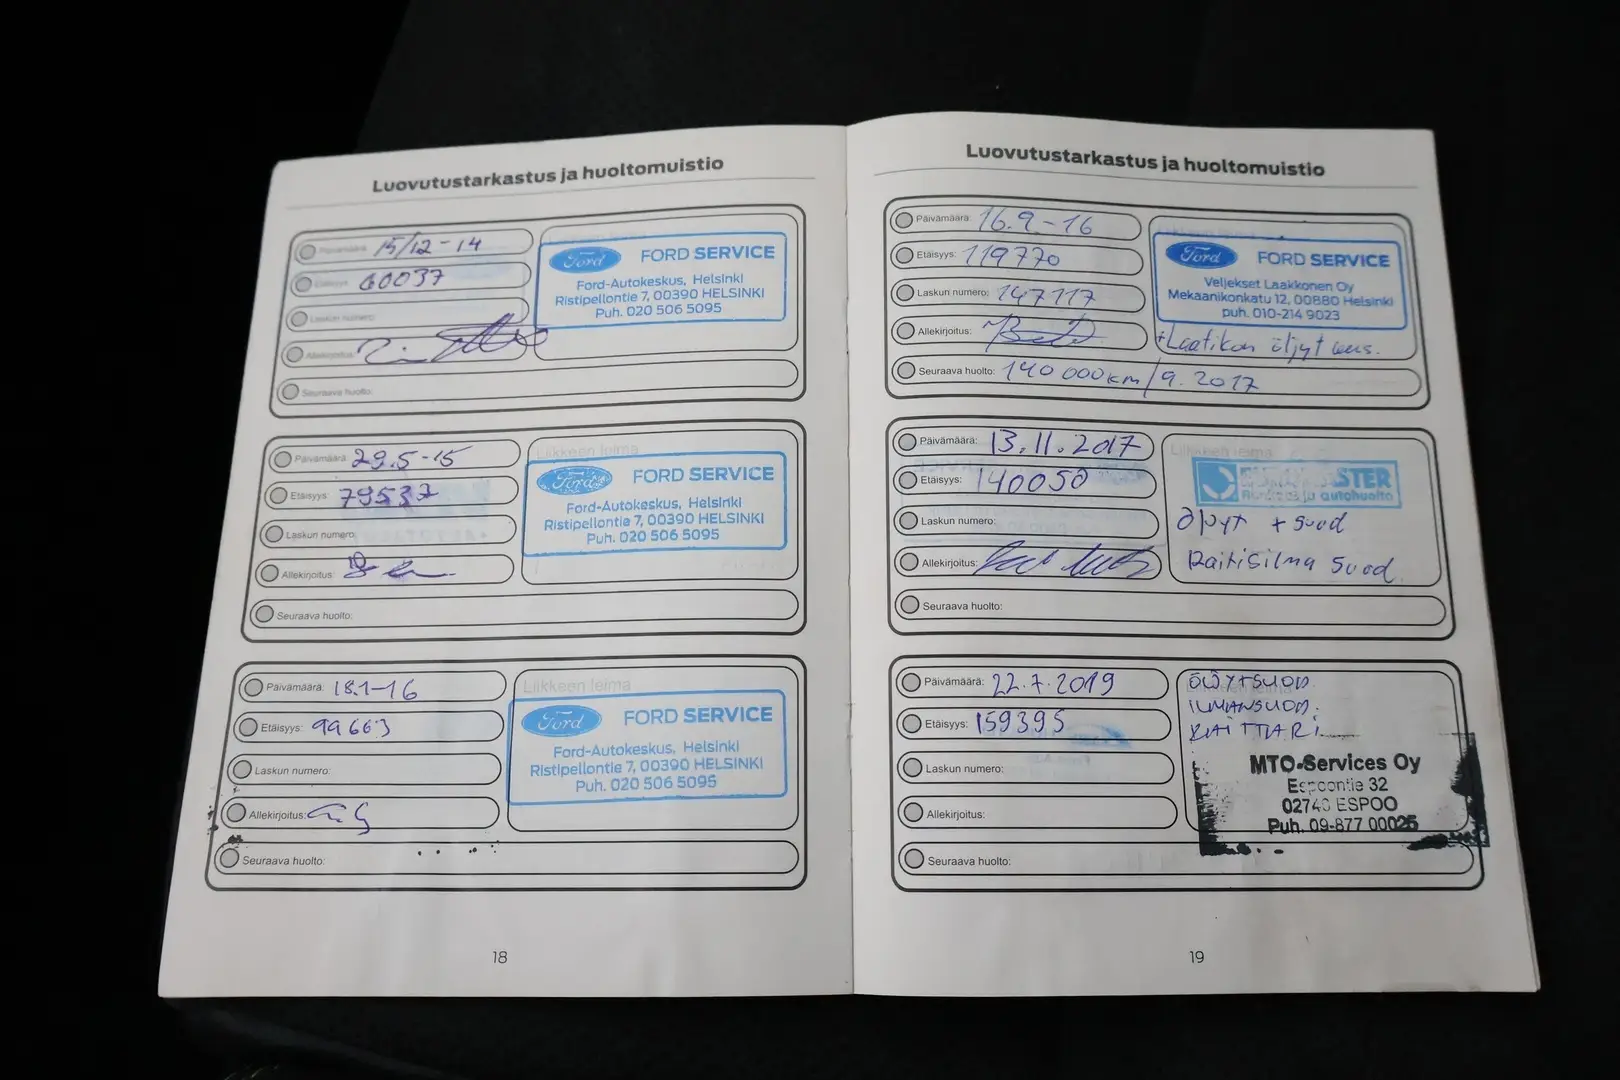 Luovutustarkastus ja huoltomuistio
Päivämäärä: 15/12-14
Etäisyys: 60037
Laskun numero:
Allekirjoitus:
Seuraava huolto:
Ford FORD SERVICE
Ford-Autokeskus, Helsinki
Ristipellontie 7, 00390 HELSINKI
Puh. 020 506 5095
Päivämäärä: 29.5-15
Etäisyys: 79537
Laskun numero:
Allekirjoitus:
Seuraava huolto:
Liikkeen leima
Ford FORD SERVICE
Ford-Autokeskus, Helsinki
Ristipellontie 7, 00390 HELSINKI
Puh. 020 506 5095
Päivämäärä: 18.1-16
Etäisyys: 99663
Laskun numero:
Allekirjoitus:
Seuraava huolto:
Liikkeen leima
Ford FORD SERVICE
Ford-Autokeskus, Helsinki
Ristipellontie 7, 00390 HELSINKI
Puh. 020 506 5095
18
Luovutustarkastus ja huoltomuistio
Päivämäärä: 16.9-16
Etäisyys: 119770
Laskun numero: 147117
Allekirjoitus:
Seuraava huolto: 140 000km/9.2017
Ford FORD SERVICE
Veljekset Laakkonen Oy
Mekaanikonkatu 12, 00880 Helsinki
puh. 010-214 9023
+Laatikon öljyt
Päivämäärä: 13.11.2017
Etäisyys: 140050
Laskun numero:
Allekirjoitus:
Seuraava huolto:
Liikkeen leima
Renkaat ja autohuolto
öljyt + suod
Raitisilma suod.
Päivämäärä: 22.7.2019
Etäisyys: 159395
Laskun numero:
Allekirjoitus:
Seuraava huolto:
ÖLJYTSUOD
ILMANSUOD.
RAITTARI
MTO-Services Oy
Espoontie 32
02740 ESPOO
Puh. 09-877 00025
19